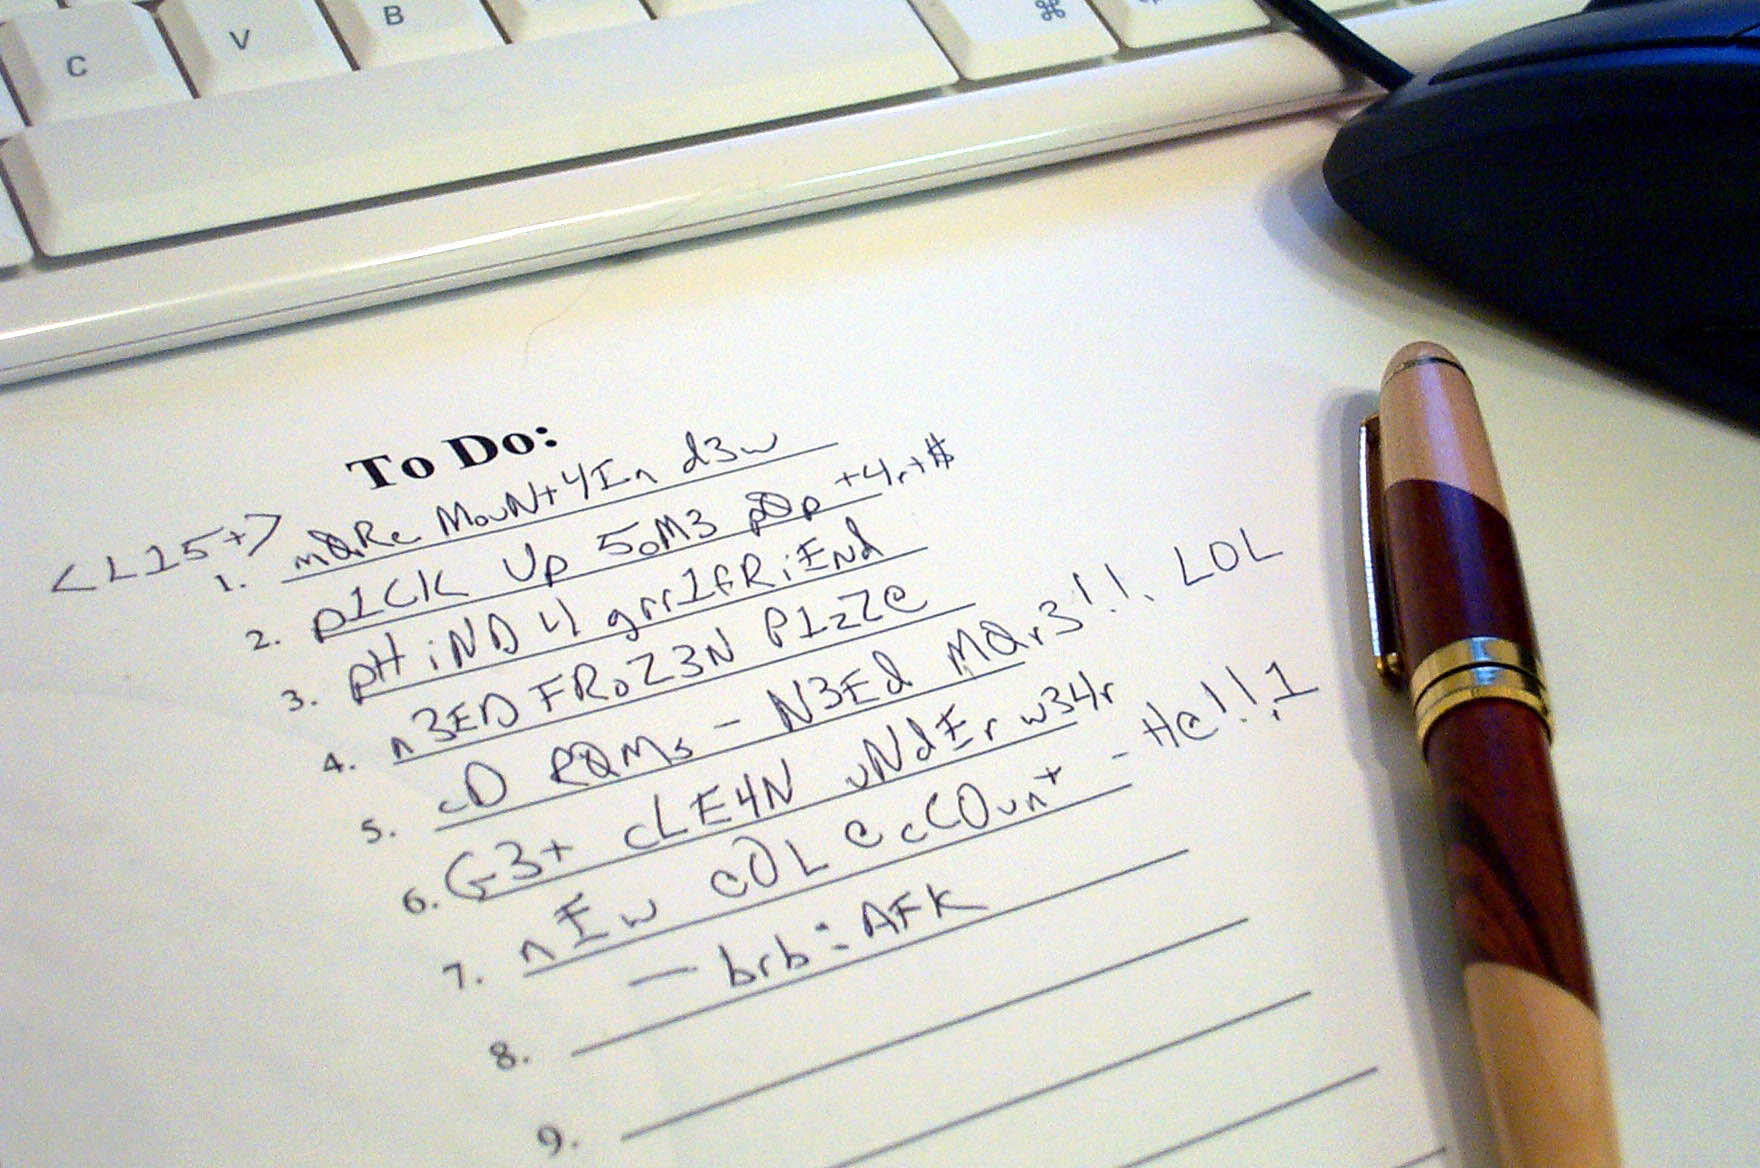 C V B ⌘
To Do:
<L15+>
1. mØRe MouN+4In d3w
2. p1CK Up 5oM3 pØp +4r+$
3. pHiND 4 grr1fRiEnd
4. n3ED FRoZ3N P1zZ@
5. cD RØMs - N3Ed MØr3!!. LOL
6. G3+ cLE4N uNdEr w34r
7. nEw cOL @cCOun+ - He!!,1
— brb: AFK
8.
9.